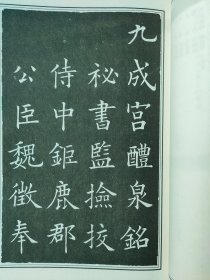 九成宫醴泉銘
秘書監撿挍
侍中鉅鹿郡
公臣魏徵奉